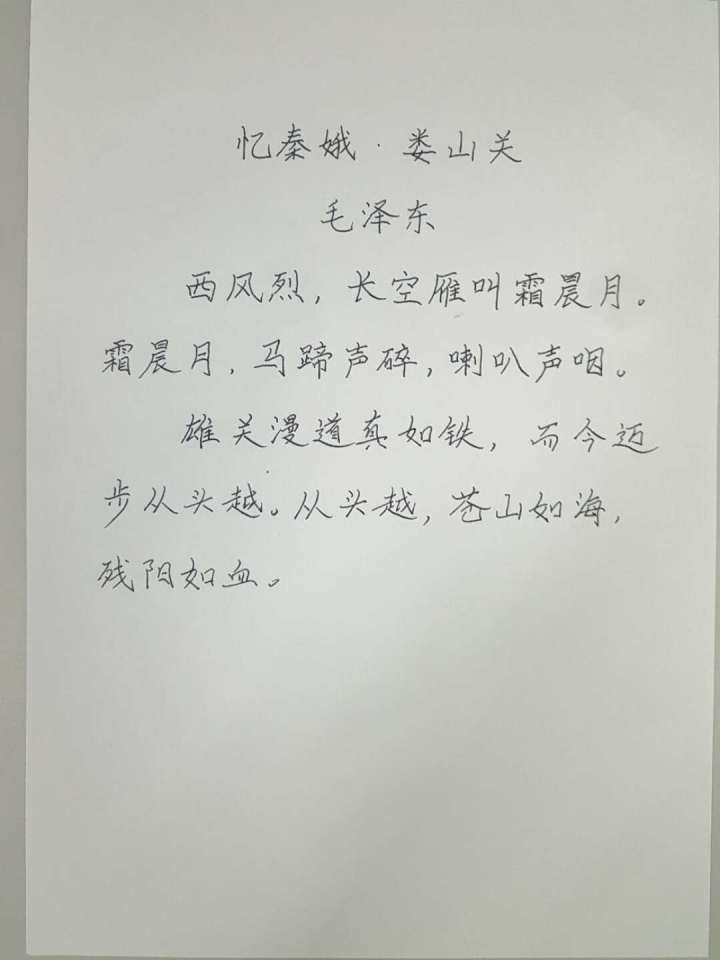 忆秦娥·娄山关
毛泽东
西风烈，长空雁叫霜晨月。
霜晨月，马蹄声碎，喇叭声咽。
雄关漫道真如铁，而今迈
步从头越。从头越，苍山如海，
残阳如血。